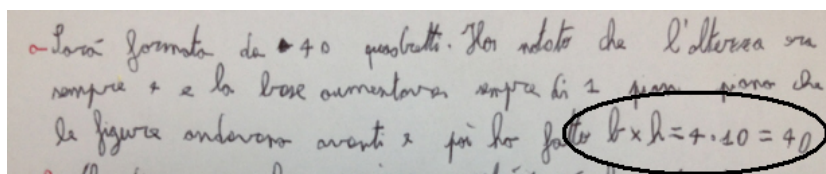 a- Sarà formata da 40 quadretti. Ho notato che l'altezza era
sempre 4 e la base aumentava sempre di 1 pian piano che
le figure andavano avanti e poi ho fatto b x h = 4 · 10 = 40